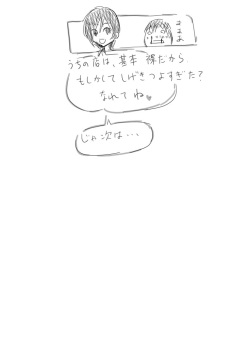 うちの店は、基本 裸だから
もしかして しげきつよすぎた?
なれてね♥
じゃ次は…